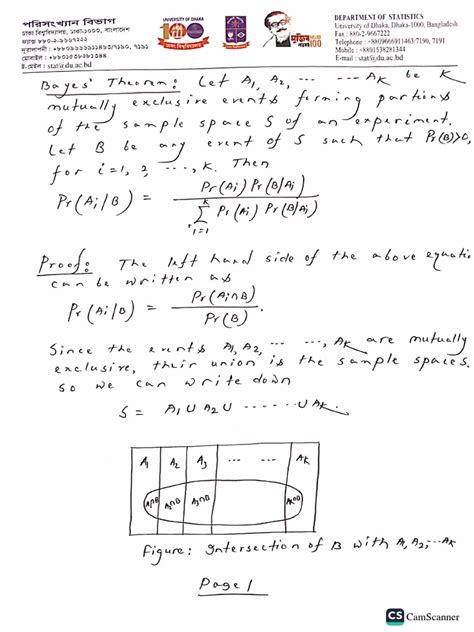 পরিসংখ্যান বিভাগ
ঢাকা বিশ্ববিদ্যালয়, ঢাকা-১০০০, বাংলাদেশ
ফ্যাক্স: ৮৮০-২-৯৬৬৭২২২
ই-মেইল : stat@du.ac.bd
UNIVERSITY OF DHAKA
100
মুজিব
শতবর্ষ 100
DEPARTMENT OF STATISTICS
University of Dhaka, Dhaka-1000, Bangladesh
Fax : 880-2-9667222
Telephone : +8809666911463/7190, 7191
Mobile : +8801538281344
E-mail : stat@du.ac.bd
Bayes' Theorem: Let A₁, A₂, ... ... AK be K
mutually exclusive events forming partions
of the sample space S of an experiment.
Let B be any event of S such that Pr(B)>0,
for i=1, 2, ..., K. Then
Pr(Ai|B) = Pr(Ai) Pr(B|Ai) / Σ_{i=1}^{K} Pr(Ai) Pr(B|Ai)
Proof: The left hand side of the above equatio
can be written as
Pr(Ai|B) = Pr(Ai∩B) / Pr(B).
Since the events A₁, A₂, ... ..., AK are mutually
exclusive, their union is the sample spaces.
so we can write down
S = A₁ U A₂ U ....... U AK.
A₁ A₂ A₃ ... ... AK
A₁∩B A₂∩B A₃∩B AK∩B
Figure: Intersection of B with A₁, A₂, ... AK
Page 1
CS CamScanner